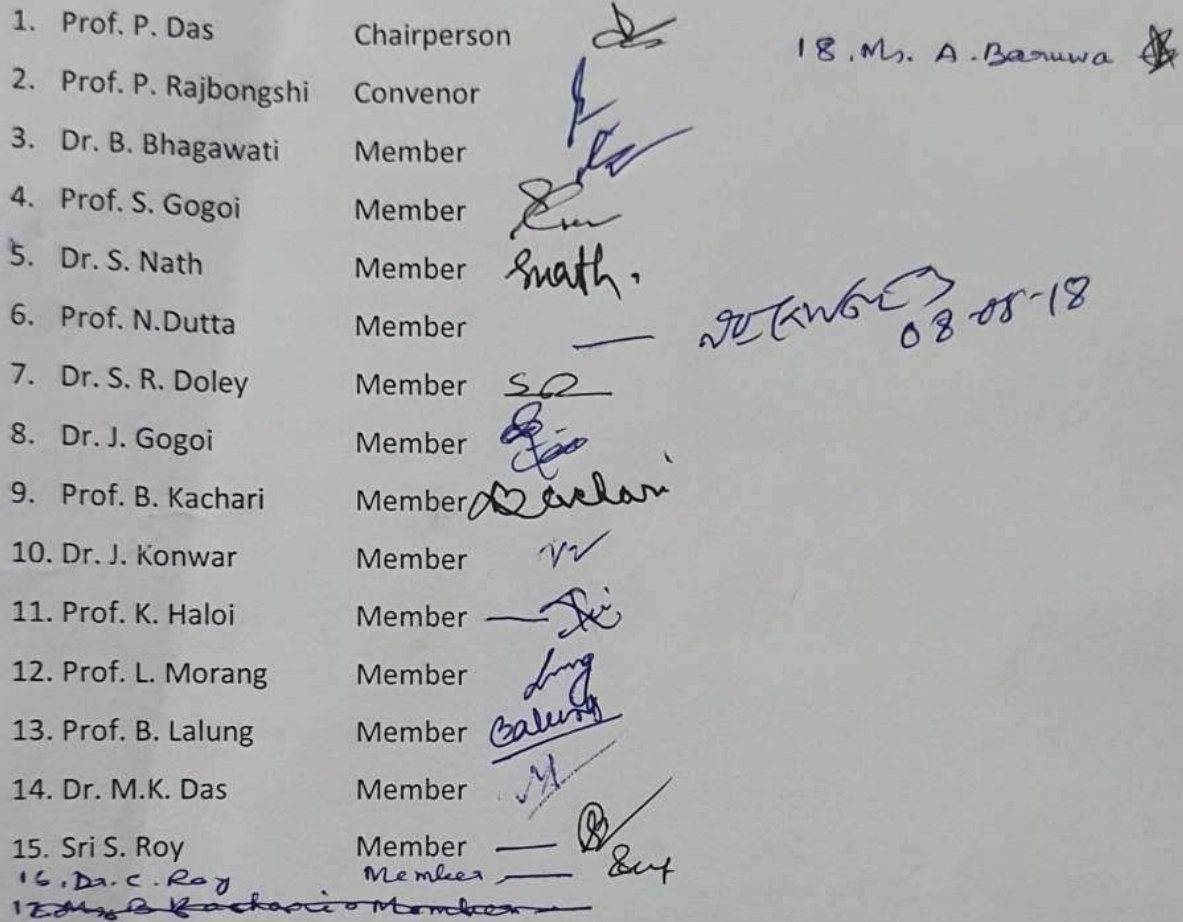 1. Prof. P. Das Chairperson
18. Ms. A. Baruwa
2. Prof. P. Rajbongshi Convenor
3. Dr. B. Bhagawati Member
4. Prof. S. Gogoi Member
5. Dr. S. Nath Member Snath.
6. Prof. N.Dutta Member — 08-08-18
7. Dr. S. R. Doley Member
8. Dr. J. Gogoi Member
9. Prof. B. Kachari Member BKachari
10. Dr. J. Konwar Member
11. Prof. K. Haloi Member —
12. Prof. L. Morang Member
13. Prof. B. Lalung Member Balung
14. Dr. M.K. Das Member
15. Sri S. Roy Member —
16. Dr. C. Roy Member, —